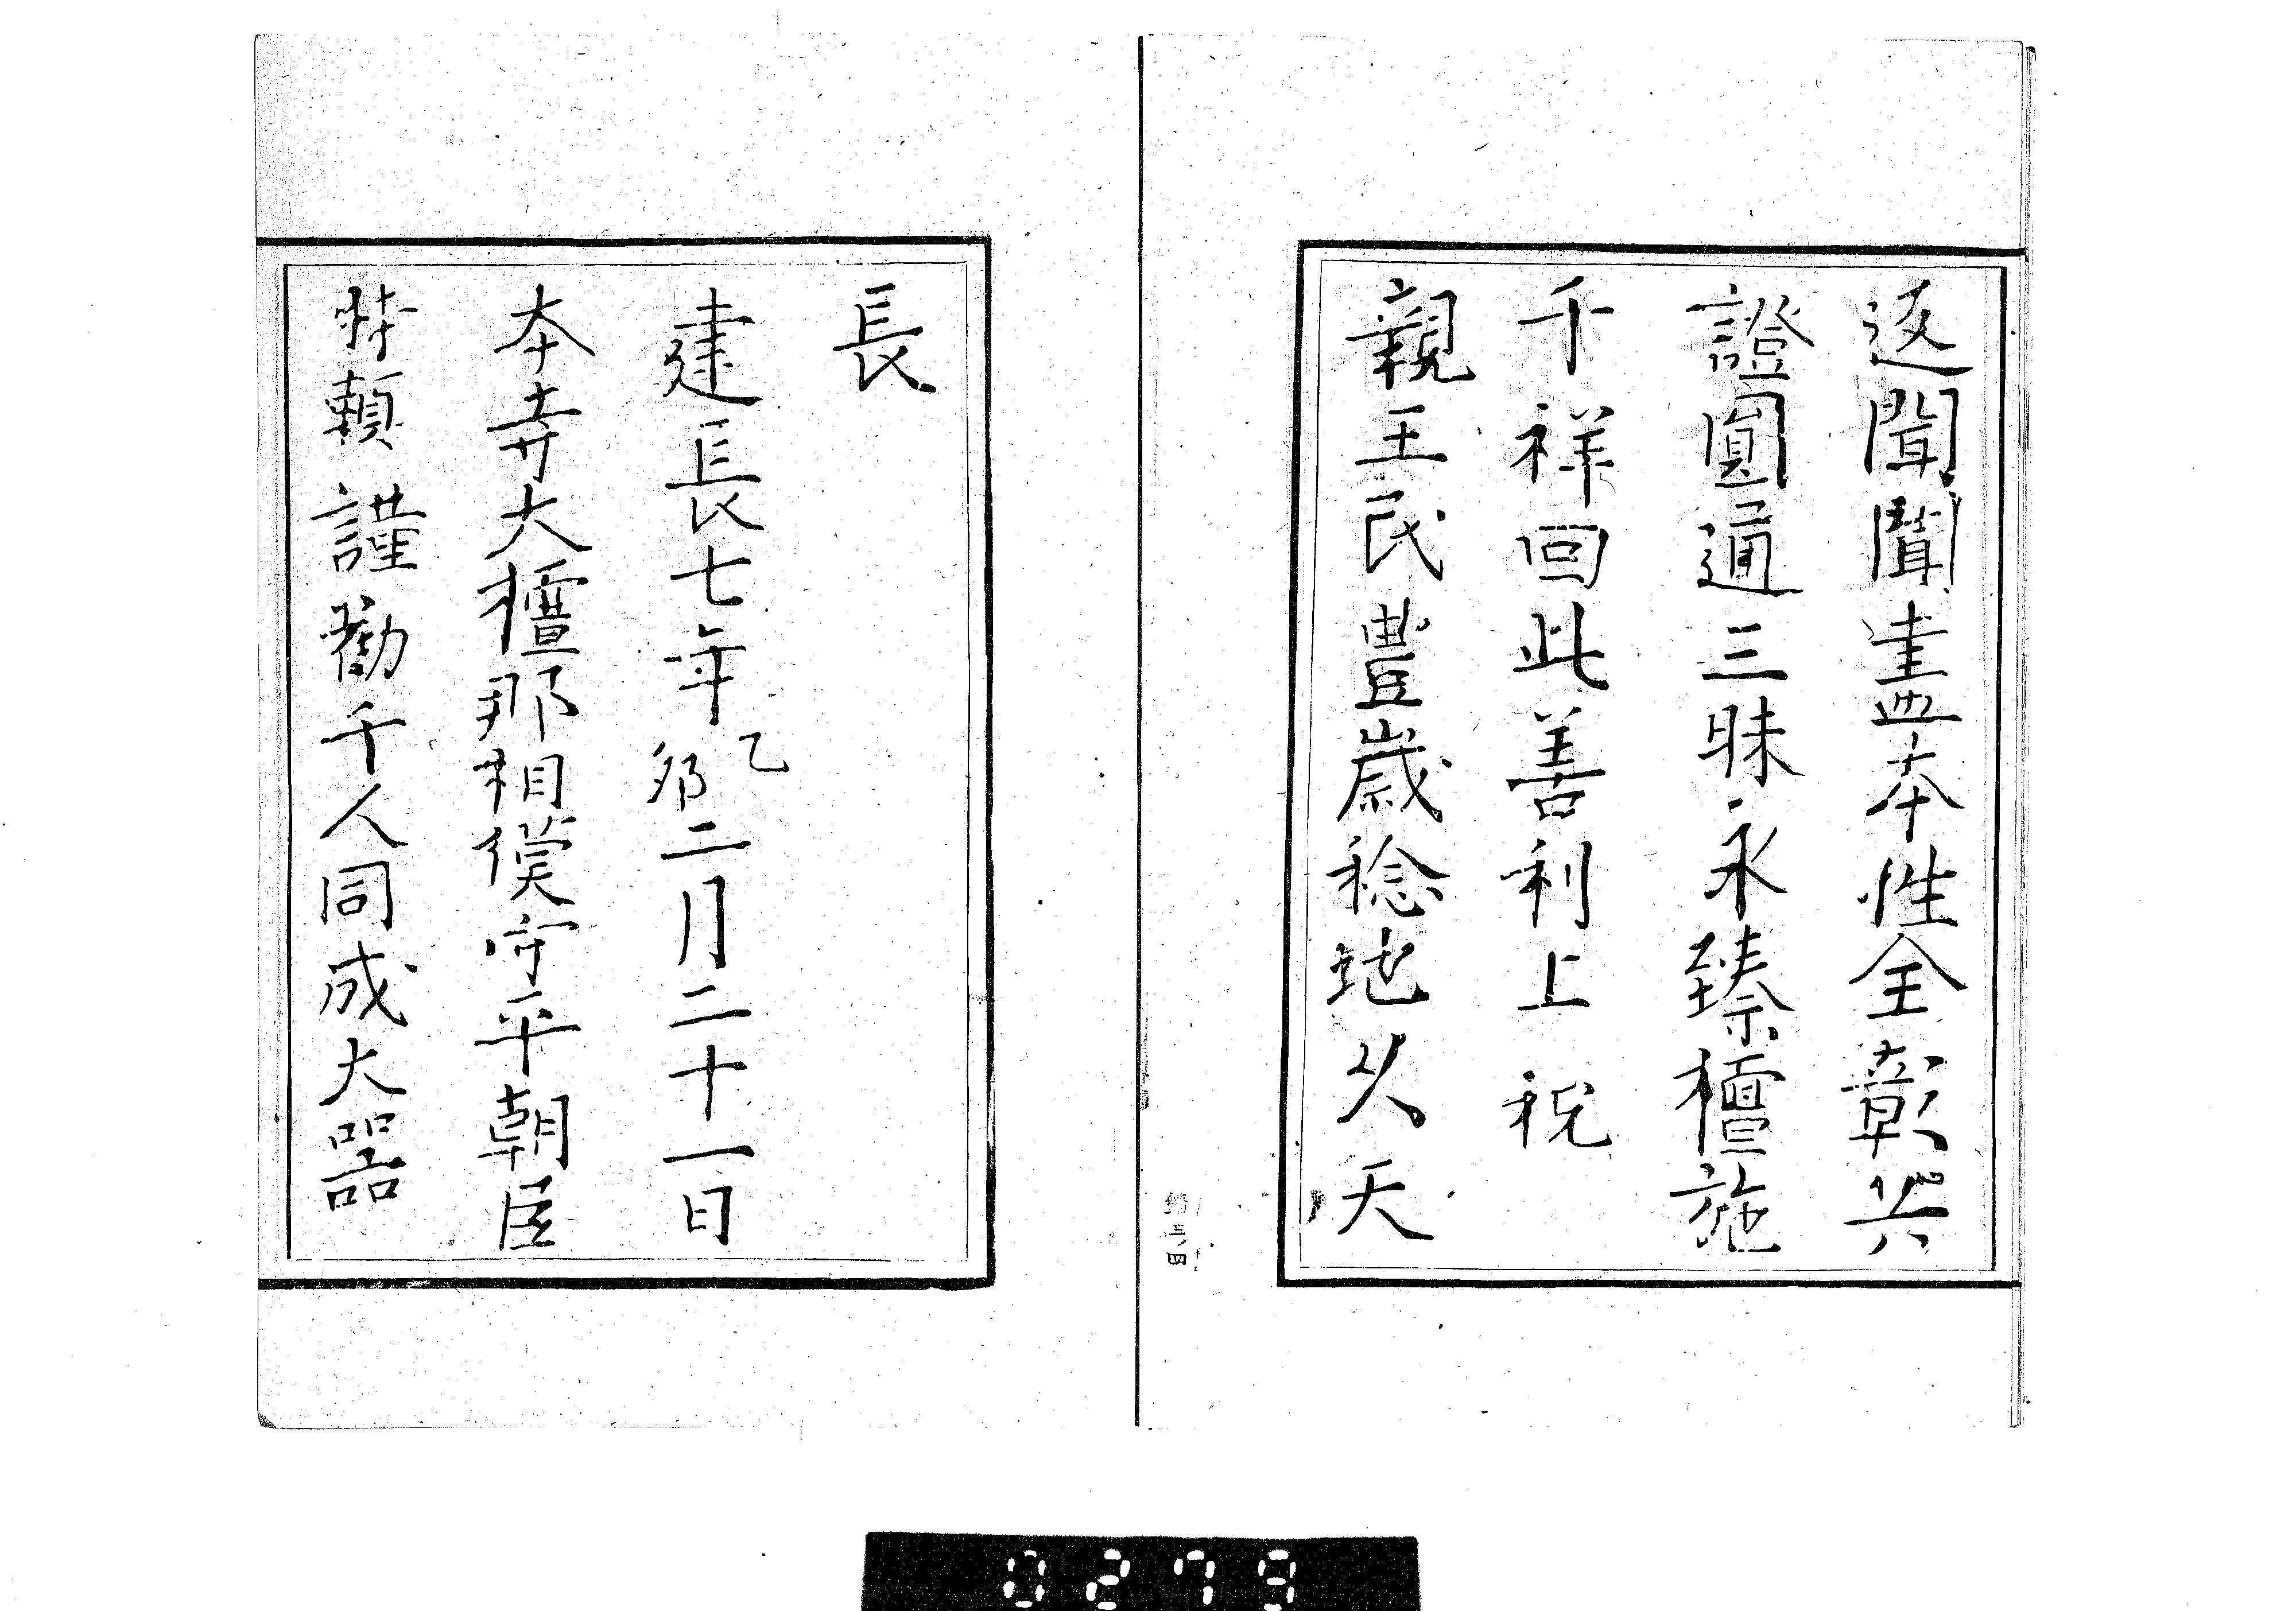 返聞聞盡本性全彰共
證圓通三昧永臻檀施
千祥回此善利上祝
親王民豊歳稔地久天
長
建長七年乙卯二月二十一日
本寺大檀那相模守平朝臣
時頼謹勸千人同成大器
0279